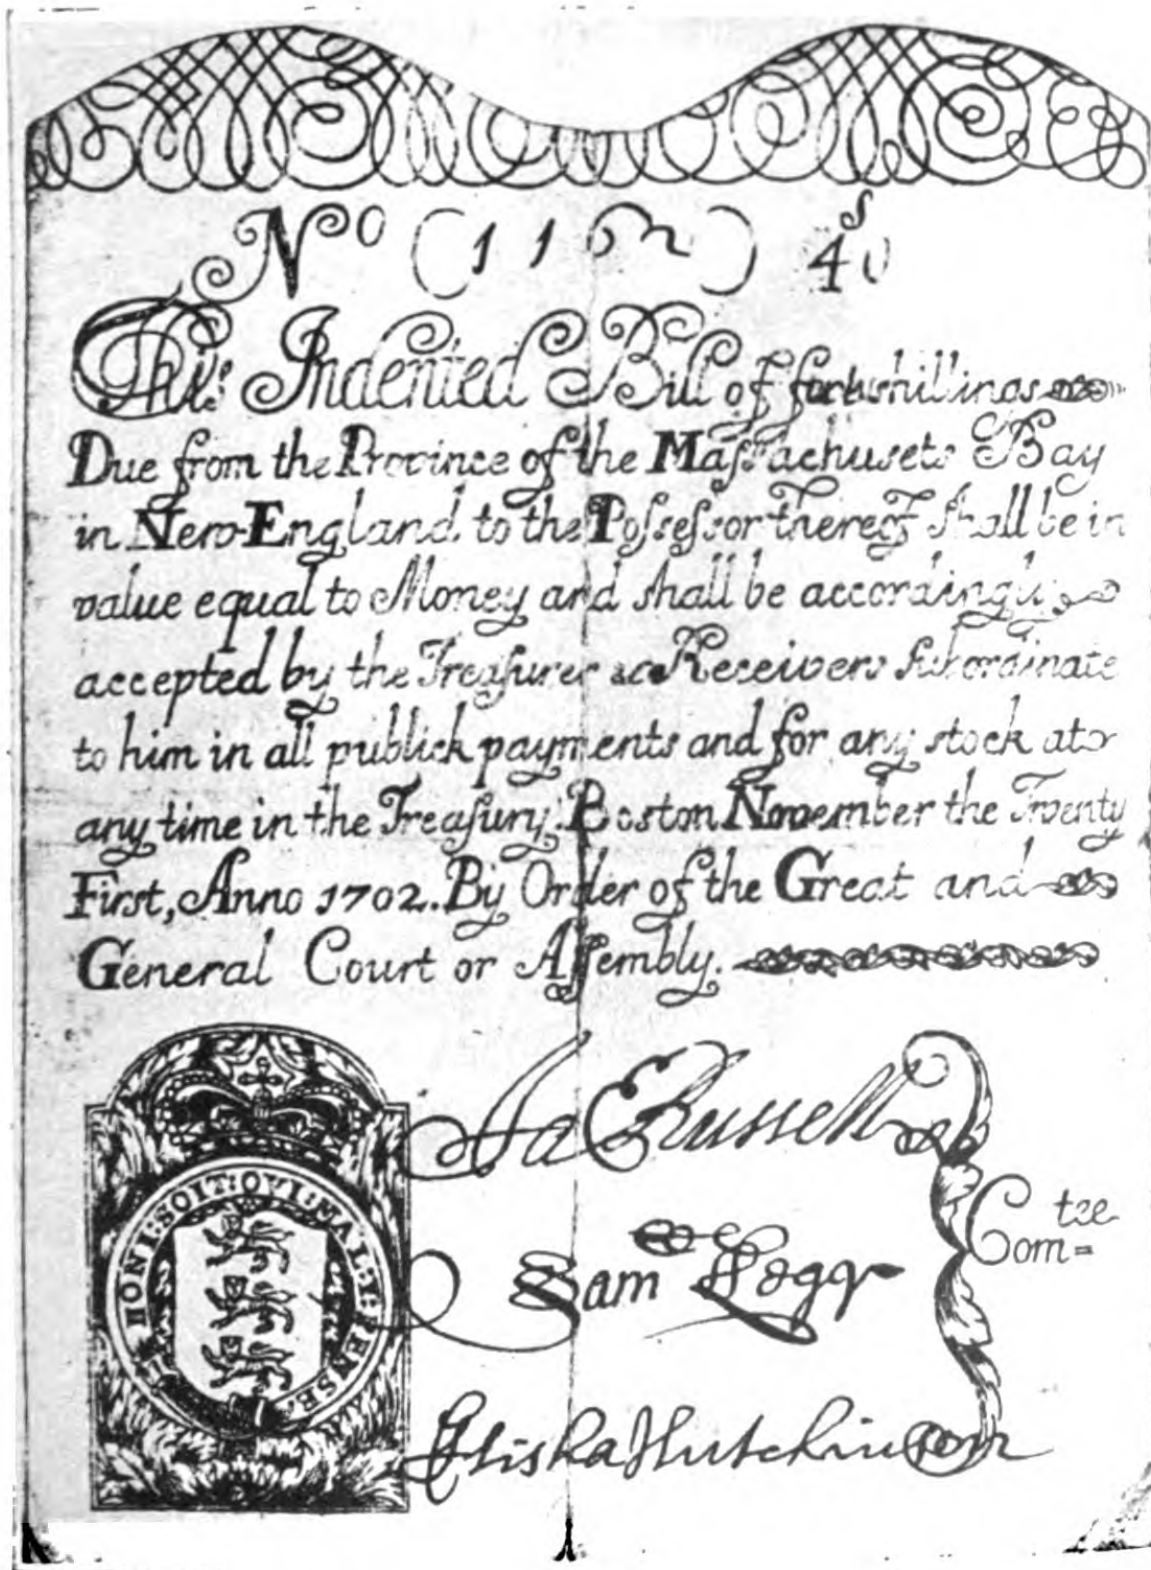 No (11   ) 40s
This Indented Bill of fortyshillings
Due from the Province of the Maſsachusets Bay
in New-England. to the Poſseſsor thereof shall be in
value equal to Money and shall be accordingly
accepted by the Treaſurer & Receivers ſubordinate
to him in all publick payments and for any stock at
any time in the Treaſury. Boston November the Twenty
First, Anno 1702. By Order of the Great and
General Court or Aſsembly.
Ja Russell
Samˡ Legg
Elisha Hutchinson
Com=tee
HONI:SOIT:QVI:MAL:Y:PENSE